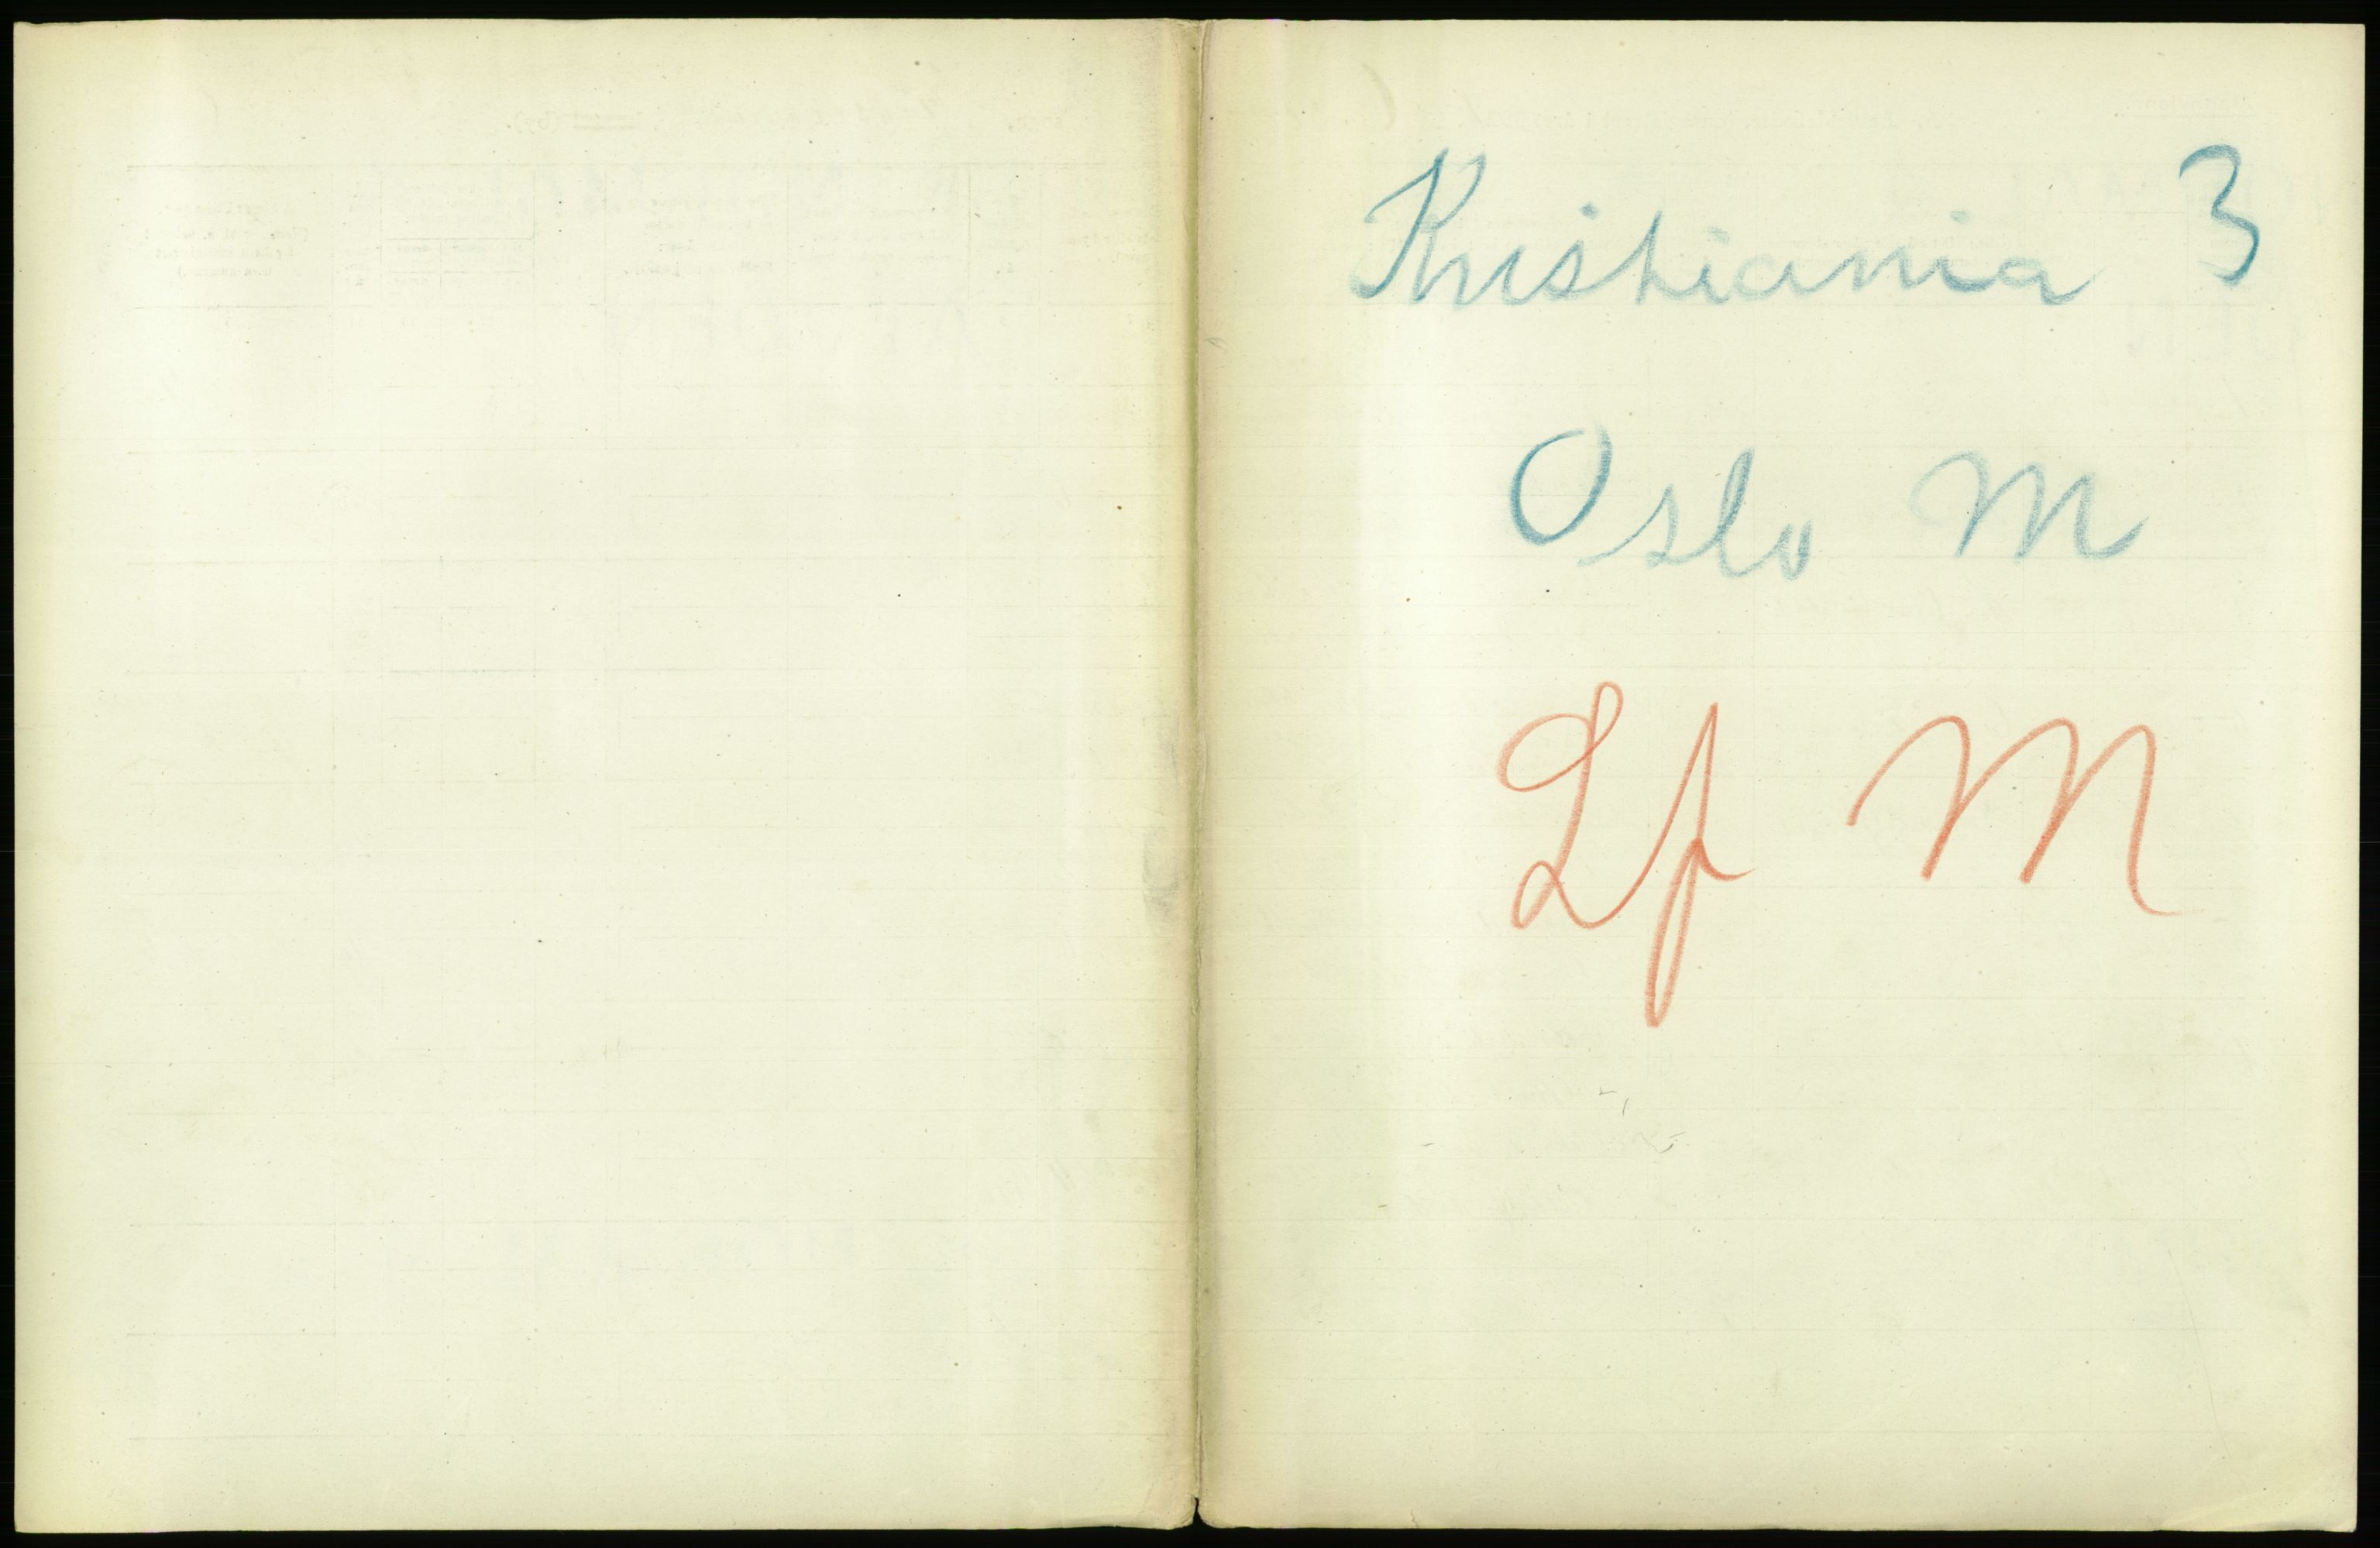 Kristiania 3
Oslo M
Lf M